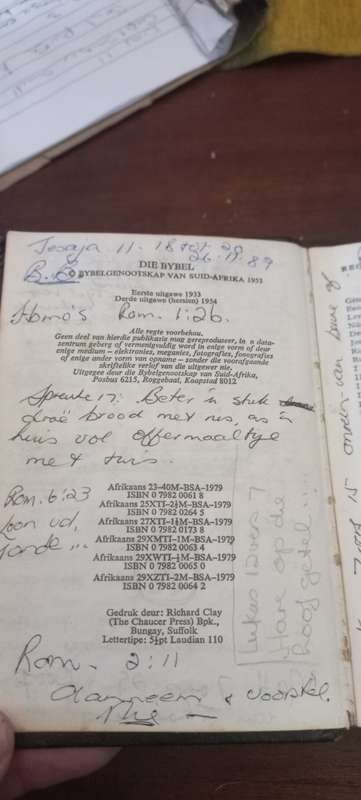 Jesaja 11. 18 tot 20
26.11.89
B.B.
DIE BYBEL
© BYBELGENOOTSKAP VAN SUID-AFRIKA 1953
Eerste uitgawe 1933
Derde uitgawe (hersien) 1954
Homo's Rom. 1:26.
Alle regte voorbehou.
Geen deel van hierdie publikasie mag gereproduseer, in 'n data-
sentrum geberg of vermenigvuldig word in enige vorm of deur
enige medium – elektronies, meganies, fotografies, fonografies
of enige ander vorm van opname – sonder die voorafgaande
skriftelike verlof van die uitgewer nie.
Uitgegee deur die Bybelgenootskap van Suid-Afrika,
Posbus 6215, Roggebaai, Kaapstad 8012
Spreuke 17: Beter 'n stuk
droë brood met rus, as 'n
huis vol offermaaltye
met twis..
Rom. 6:23
Loon vd.
sonde...
Afrikaans 23–40M–BSA–1979
ISBN 0 7982 0061 8
Afrikaans 25XTI–2½M–BSA–1979
ISBN 0 7982 0264 5
Afrikaans 27XTI–1½M–BSA–1979
ISBN 0 7982 0173 8
Afrikaans 29XMTI–1M–BSA–1979
ISBN 0 7982 0063 4
Afrikaans 29XWTI–½M–BSA–1979
ISBN 0 7982 0065 0
Afrikaans 29XZTI–2M–BSA–1979
ISBN 0 7982 0064 2
Lukas 12 vers 7
Hare op die
hoof getel...
Gedruk deur: Richard Clay
(The Chaucer Press) Bpk.,
Bungay, Suffolk
Lettertipe: 5½pt Laudian 110
Rom. 2:11
Aanneem & voorstel.